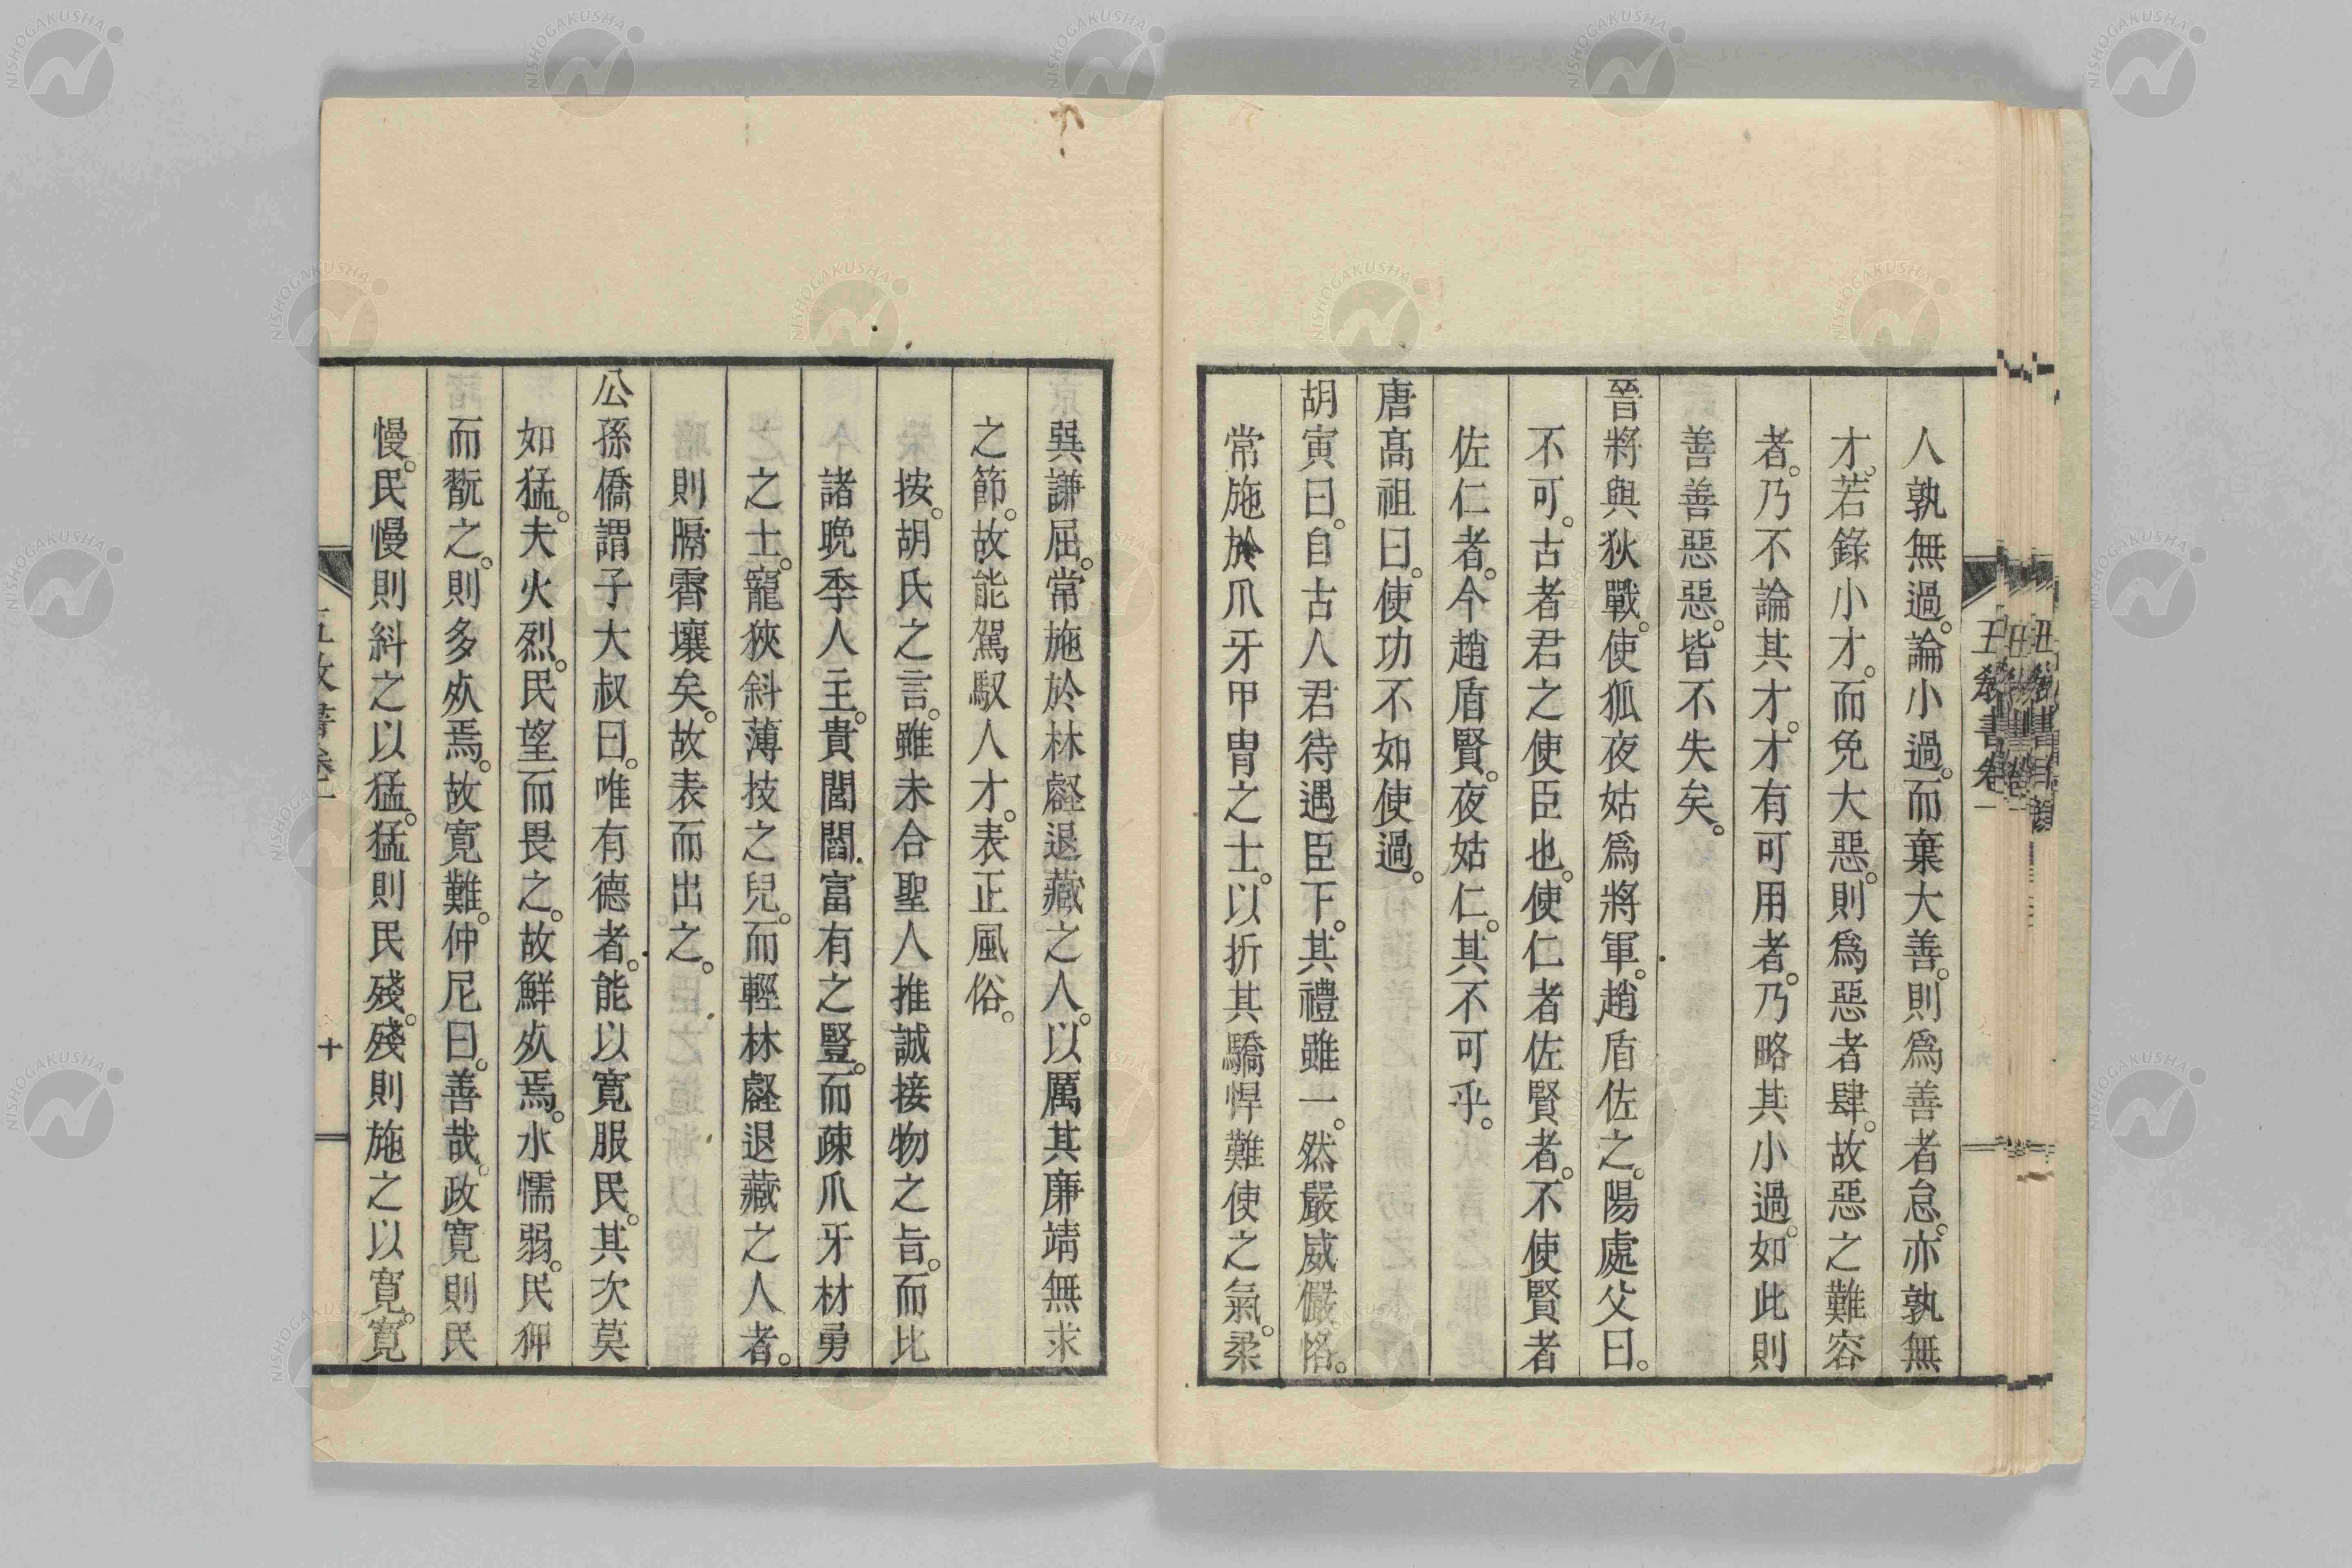 人孰無過。論小過。而棄大善。則爲善者怠。亦孰無
才。若錄小才。而免大惡。則爲惡者肆。故惡之難容
者。乃不論其才。才有可用者。乃略其小過。如此則
善善惡惡。皆不失矣。
晉將與狄戰。使狐夜姑爲將軍。趙盾佐之。陽處父曰。
不可。古者君之使臣也。使仁者佐賢者。不使賢者
佐仁者。今趙盾賢。夜姑仁。其不可乎。
唐高祖曰。使功不如使過。
胡寅曰。自古人君待遇臣下。其禮雖一。然嚴威儼恪。
常施於爪牙甲冑之士。以折其驕悍難使之氣。柔
巽謙屈。常施於林壑退藏之人。以厲其廉靖無求
之節。故能駕馭人才。表正風俗。
按。胡氏之言。雖未合聖人推誠接物之旨。而比
諸晩季人主。貴閽閹富有之豎。而疎爪牙材勇
之士。寵狹斜薄技之兒。而輕林壑退藏之人者。
則膈霄壤矣。故表而出之。
公孫僑謂子大叔曰。唯有德者。能以寛服民。其次莫
如猛。夫火烈。民望而畏之。故鮮㱙焉。水懦弱。民狎
而翫之。則多㱙焉。故寛難。仲尼曰。善哉。政寛則民
慢。民慢則糾之以猛。猛則民殘。殘則施之以寛。寛
十
NISHOGAKUSHA